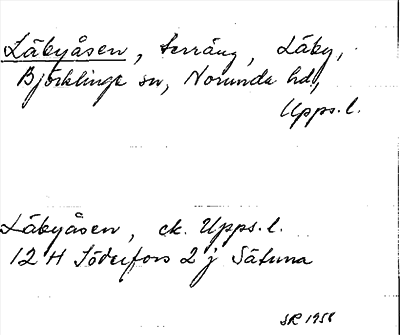 Läbyåsen, terräng, Läby,
Björklinge sn, Norunda hd,
Upps. l.
Läbyåsen, ek. Upps. l.
12 H Söderfors 2 j Sätuna
SR 1958